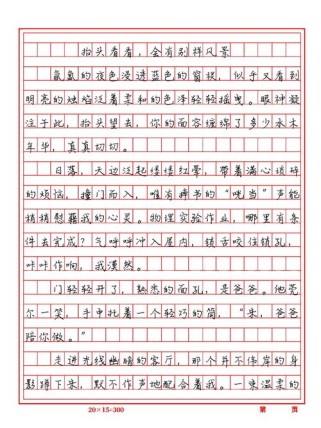 抬头看看，会有别样风景
氤氲的夜色浸透蓝色的窗纱，似乎又看到
明亮的烛焰泛着柔和的色泽轻轻摇曳。眼神凝
注于此，抬头望去，你的面容缠绵了多少水木
年华，真真切切。
日落，天边泛起缕缕红霞，带着满心琐碎
的烦恼，撞门而入，唯有摔书的“咣当”声能
稍稍慰藉我的心灵。物理实验作业，哪里有条
件去完成？气呼呼冲入屋内，锁舌咬住锁孔，
咔咔作响，我漠然。
门轻轻开了，熟悉的面孔，是爸爸。他莞
尔一笑，手中托着一个轻巧的筒，“来，爸爸
陪你做。”
走进光线幽暗的客厅，那个并不伟岸的身
影蹲下来，默不作声地配合着我。一束温柔的
20×15=300 第 页